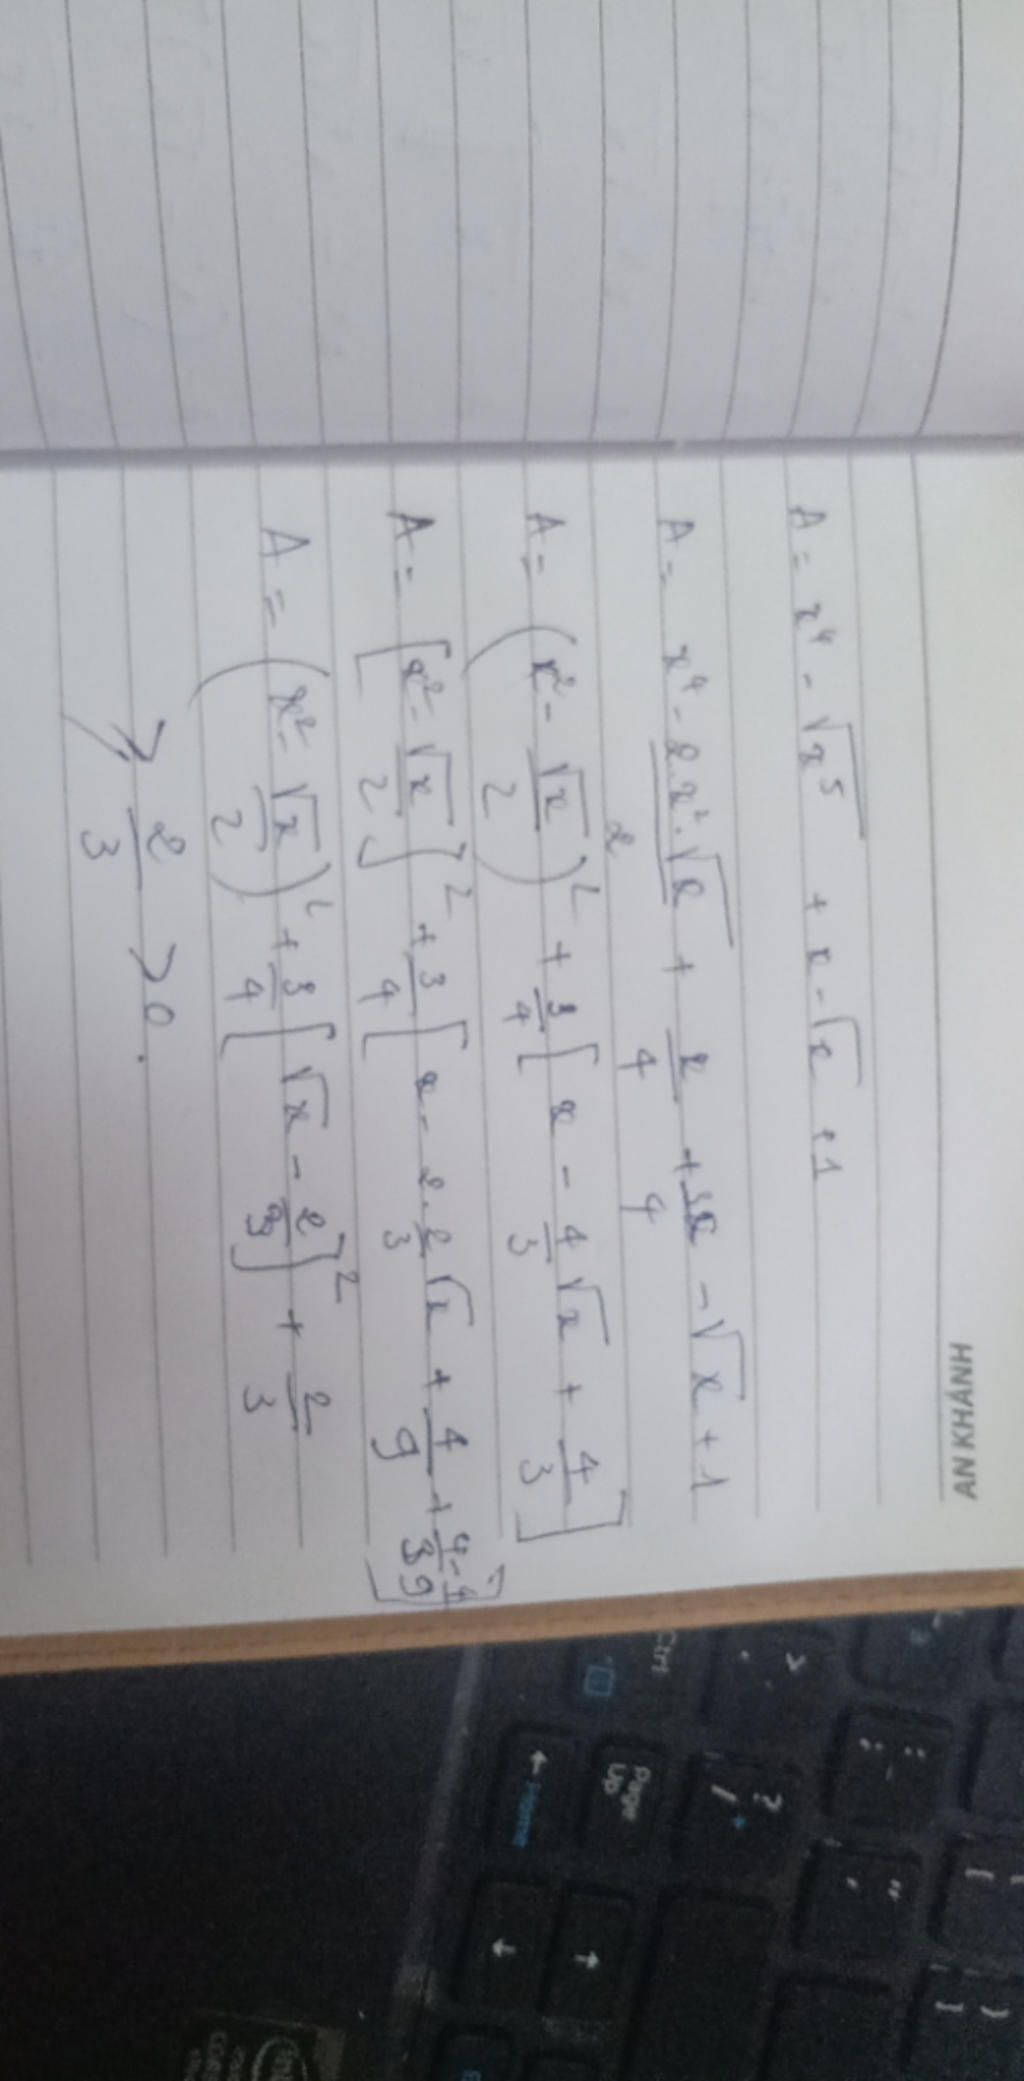 AN KHÁNH
A = x⁴ - √x⁵ + x - √x + 1
A = x⁴ - 2.x².√x/2 + x/4 + 3x/4 - √x + 1
A = (x² - √x/2)² + 3/4 [x - 4/3 √x + 4/3]
A = [x² - √x/2]² + 3/4 [x - 2.2/3 √x + 4/9 + 4/3 - 4/9]
A = (x² - √x/2)² + 3/4 [√x - 2/3]² + 2/3
⩾ 2/3 > 0.
Ctrl
Page Up
Home